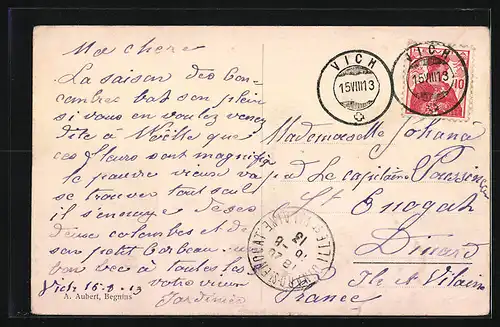 Ma chère
La saison des con-
combres bat son plein
si vous en voulez venez
dite à que
ces fleurs sont magnifiqu
le pauvre vieux va pas
se trouver tout seul
il s'ennuye de ses
deux colombes et de
son petit Corbeau.
bon bec à toutes les
votre vieux
Jardinier
Vich 15-8-13
A. Aubert, Begnins
VICH
15 VIII 13
VICH
15 VIII 13
10
Mademoiselle Johana
Le capitaine
St Enogat
Dinard
Ile et Vilaine
France